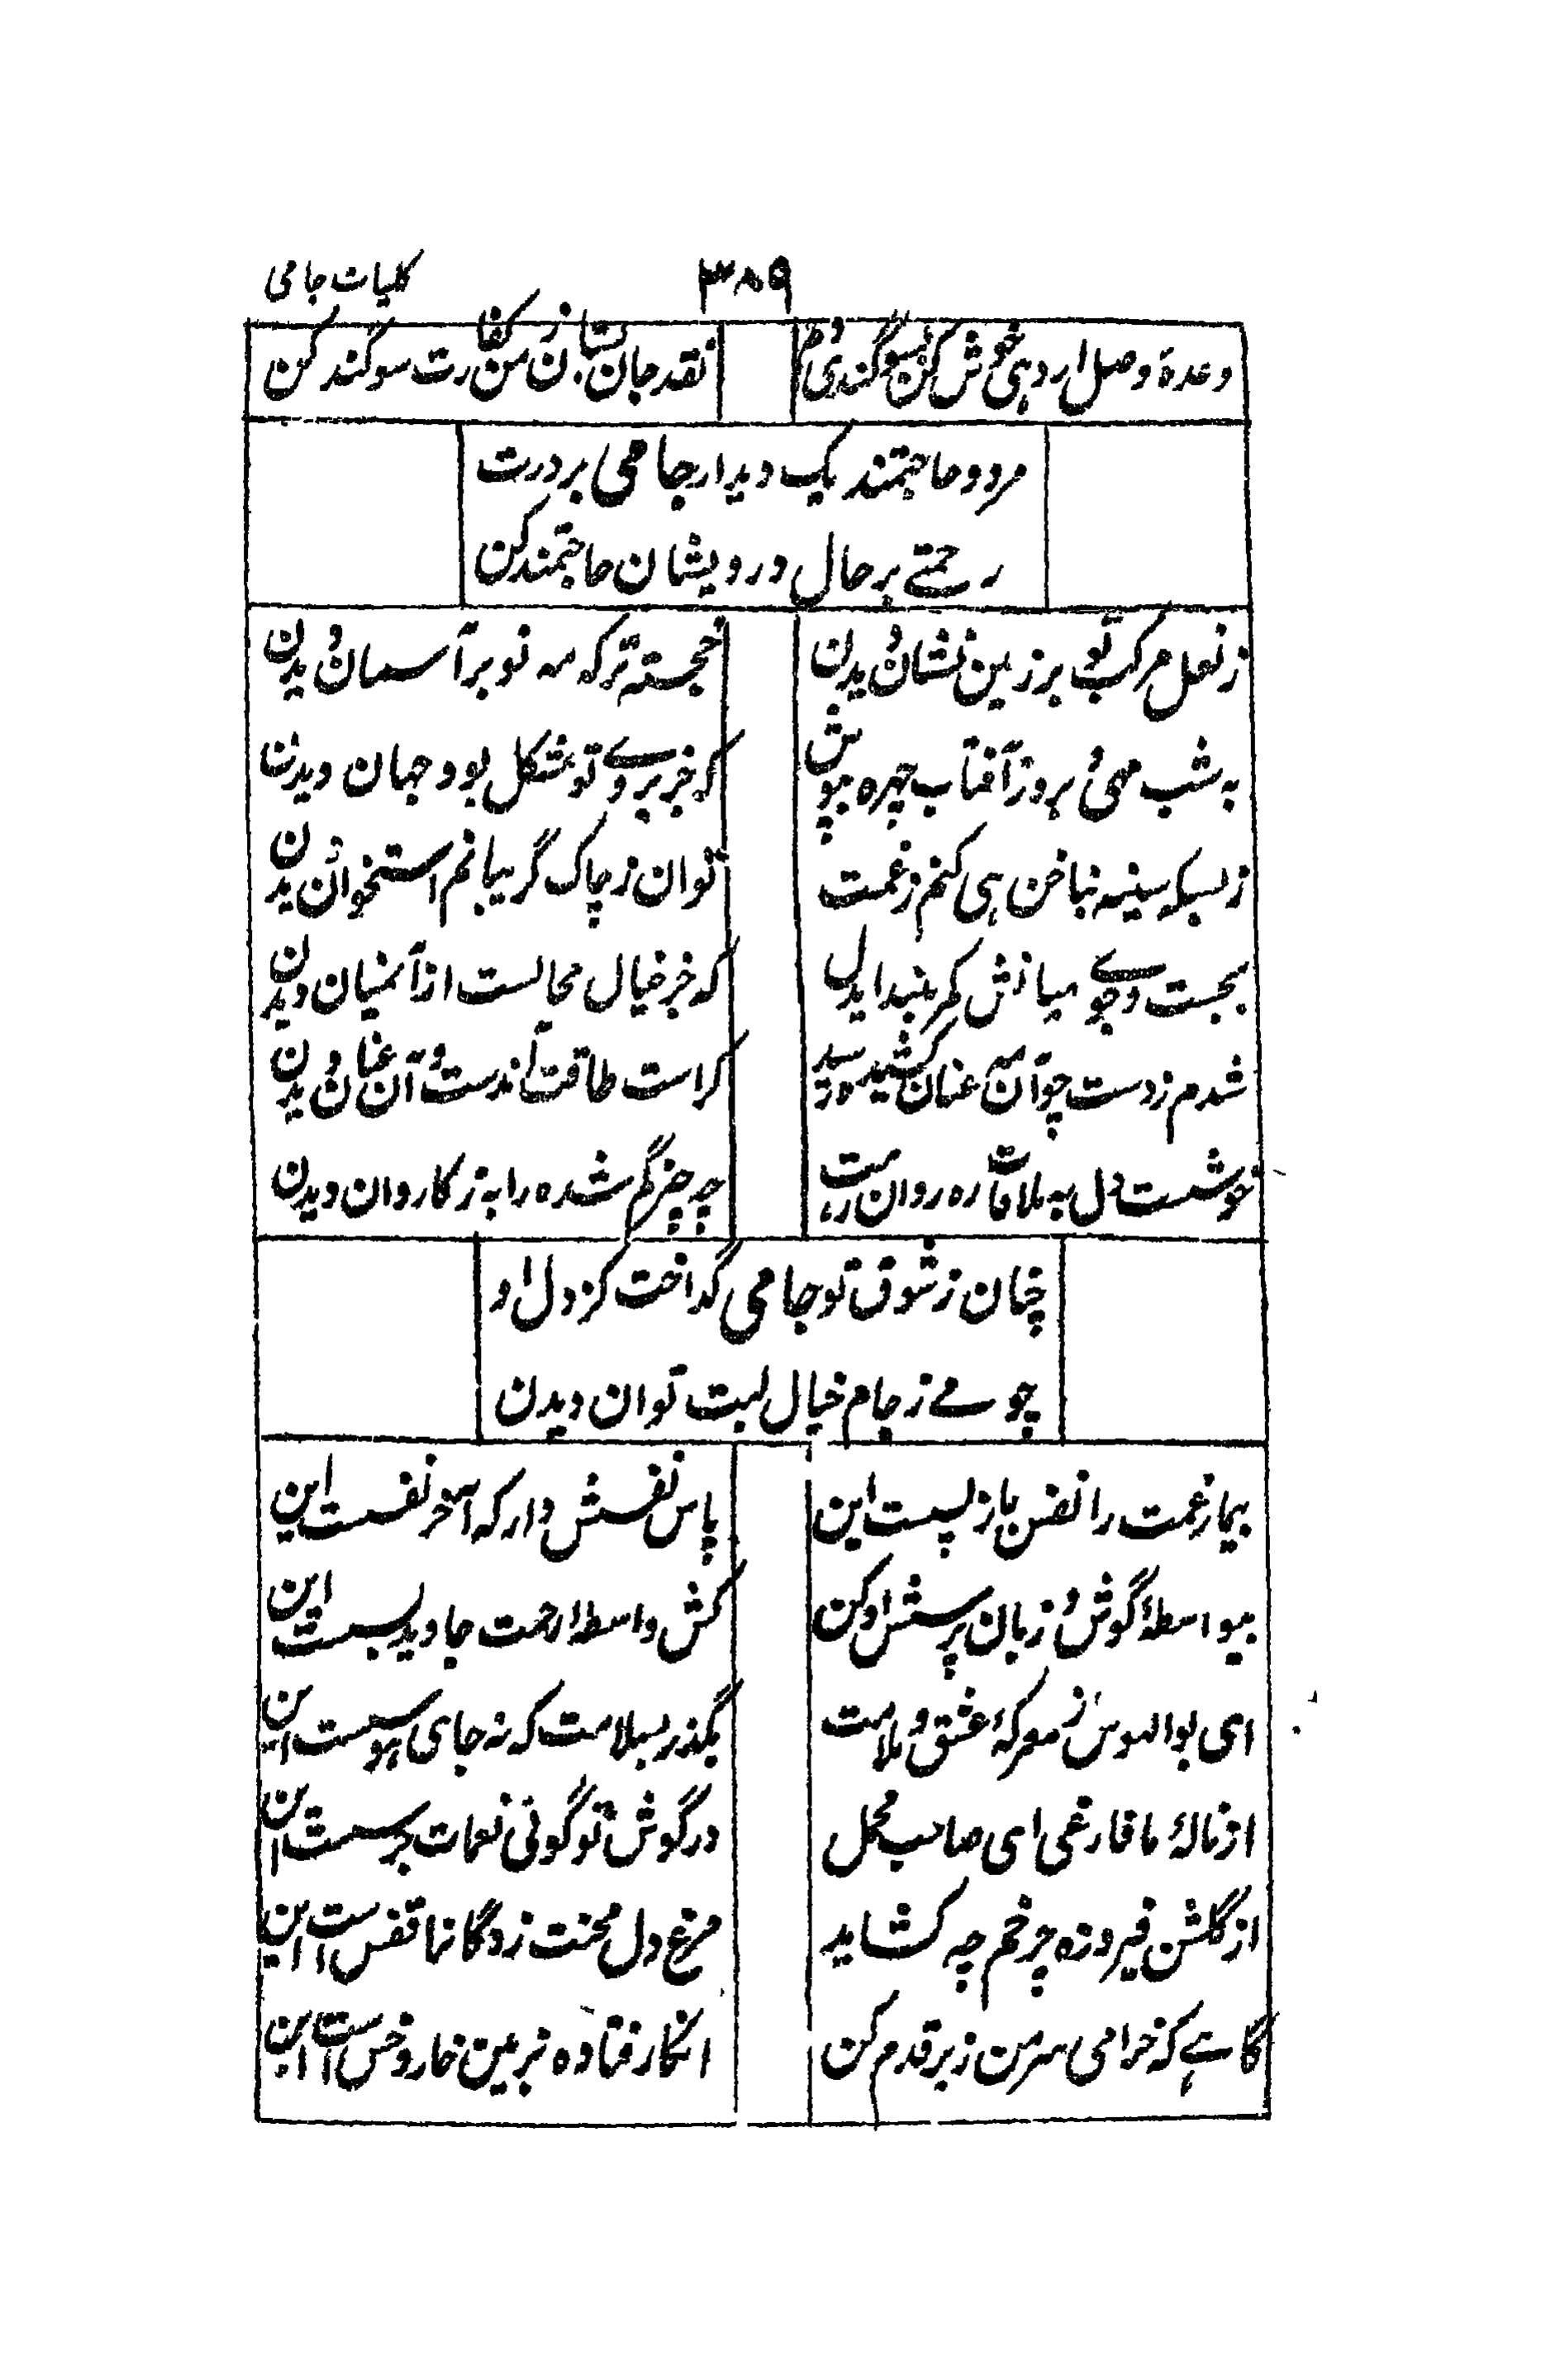 ۳۸۹
کلیات جامی
وعدهٔ وصل ار دهی خوش کن بسوگندی دلم
نقد جان بستان ز من کفارت سوگند کن
مرد و حاجتمند یک دیدار جامی بر درت
رحمتے بر حال درویشان حاجتمند کن
ز نعل مرکب تو بر زمین نشان دیدن
خجسته تر که مه نو بر آسمان دیدن
به شب مهی و بروز آفتاب چهره مپوش
که جز بروے تو مشکل بود جهان دیدن
ز بسکه سینه بناخن همی کنم ز غمت
توان ز چاک گریبانم استخوان دیدن
بجست و جوے میانش کمر مبند ایدل
که جز خیال محالست از آنمیان دیدن
شدم ز دست چو آن مه عنان کشیده رسید
کراست طاقت آندست و آن عنان دیدن
خوشست دل به ملاقات ره روان رهت
چه چیز گم شده را به ز کاروان دیدن
چنان ز شوق تو جامی گداخت کز دل او
چو مے ز جام خیال لبت توان دیدن
بیمار غمت را نفس باز پسست این
پاس نفسش دار که آخر نفسست این
بیواسطهٔ گوش و زبان پرسش او کن
کش واسطه رحمت جاوید بسست این
ای بوالهوس ز معرکهٔ عشق و ملامت
بگذر بسلامت که نه جای هوسست این
از نالهٔ ما فارغی ای صاحب محمل
در گوش تو گوئی نغمات جرسست این
از گلشن فیروزه چرخم چه کشاید
مرغ دل محنت زدگانرا قفس است این
گاهے که خرامی سر من زیر قدم کن
انگار فتاده بزمین خار و خس است این